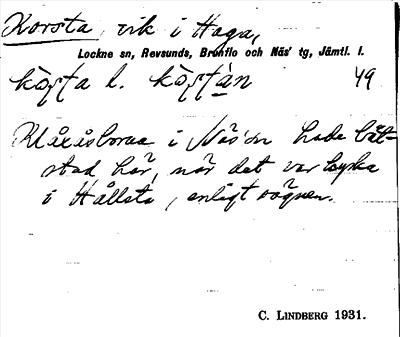 Korsta, vik i Haga,
Lockne sn, Revsunds, Brunflo och Näs' tg, Jämtl. l.
kòṣṭa l. kòṣṭa̱n 49
i Näs'sn hade båt-
stad här, när det var kyrka
i Hållsta, enligt sägnen.
C. LINDBERG 1931.